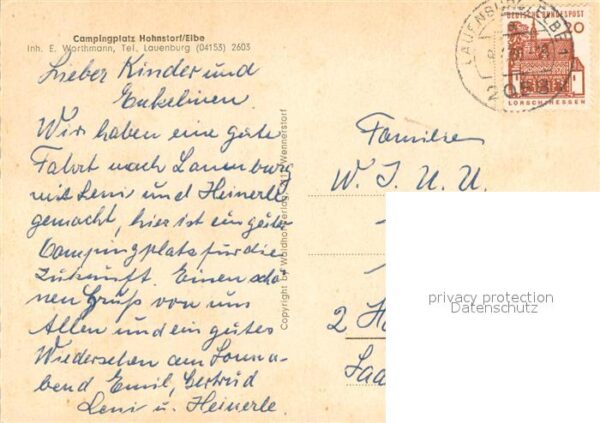 Campingplatz Hohnstorf/Elbe
Inh. E. Worthmann, Tel. Lauenburg (04153) 2603
Lieber Kinder und
Enkelinen.
Wir haben eine gute
Fahrt nach Lauenburg
mit Leni und Heinerle
gemacht, hier ist ein guter
Campingplatz für die
Zukunft. Einen schö-
nen Gruß von uns
Allen und ein gutes
Wiedersehen am Sonna-
bend Emil, Gertrud
Leni u. Heinerle.
Copyright by Waldhof-Verlag, Wennerstorf
LAUENBURG/ELBE
DEUTSCHE BUNDESPOST
20
LORSCH/HESSEN
Familie
W. J. U. U.
2
privacy protection
Datenschutz